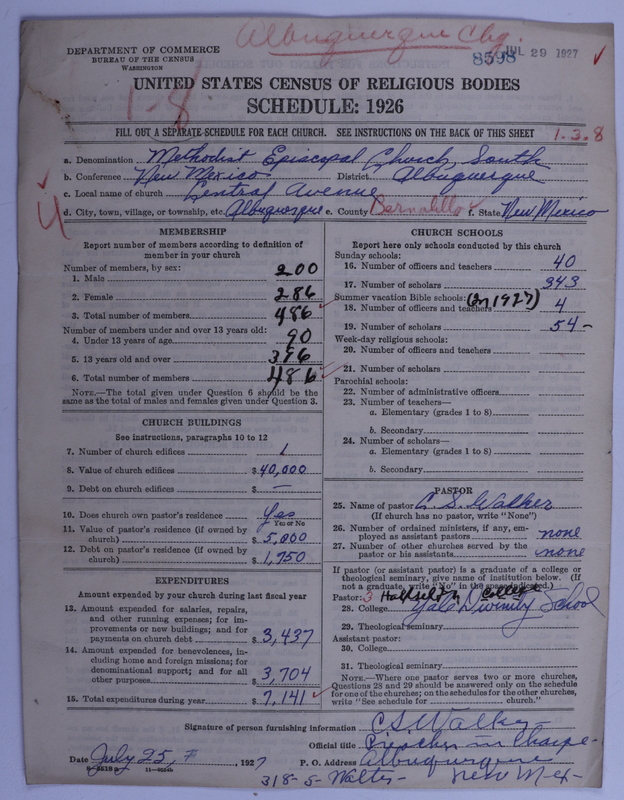 Albuquerque Chg.
8598 JUL 29 1927
DEPARTMENT OF COMMERCE
BUREAU OF THE CENSUS
WASHINGTON
UNITED STATES CENSUS OF RELIGIOUS BODIES
1-8
SCHEDULE: 1926
FILL OUT A SEPARATE SCHEDULE FOR EACH CHURCH. SEE INSTRUCTIONS ON THE BACK OF THIS SHEET
1.3.8
a. Denomination Methodist Episcopal Church, South
b. Conference New Mexico District Albuquerque
c. Local name of church Central Avenue
d. City, town, village, or township, etc. Albuquerque e. County Bernalillo f. State New Mexico
4
MEMBERSHIP
Report number of members according to definition of
member in your church
Number of members, by sex:
1. Male 200
2. Female 286
3. Total number of members 486
Number of members under and over 13 years old:
4. Under 13 years of age 90
5. 13 years old and over 396
6. Total number of members 486
NOTE.—The total given under Question 6 should be the
same as the total of males and females given under Question 3.
CHURCH BUILDINGS
See instructions, paragraphs 10 to 12
7. Number of church edifices 1
8. Value of church edifices $ 40,000
9. Debt on church edifices $ —
10. Does church own pastor's residence Yes
Yes or No
11. Value of pastor's residence (if owned by
church) $ 5,000
12. Debt on pastor's residence (if owned by
church) $ 1,750
EXPENDITURES
Amount expended by your church during last fiscal year
13. Amount expended for salaries, repairs,
and other running expenses; for im-
provements or new buildings; and for
payments on church debt $ 3,437
14. Amount expended for benevolences, in-
cluding home and foreign missions; for
denominational support; and for all
other purposes $ 3,704
15. Total expenditures during year $ 7,141
CHURCH SCHOOLS
Report here only schools conducted by this church
Sunday schools:
16. Number of officers and teachers 40
17. Number of scholars 343
Summer vacation Bible schools: (in 1927)
18. Number of officers and teachers 4
19. Number of scholars 54-
Week-day religious schools:
20. Number of officers and teachers
21. Number of scholars
Parochial schools:
22. Number of administrative officers
23. Number of teachers—
a. Elementary (grades 1 to 8)
b. Secondary
24. Number of scholars—
a. Elementary (grades 1 to 8)
b. Secondary
PASTOR
25. Name of pastor C S. Walker
(If church has no pastor, write "None")
26. Number of ordained ministers, if any, em-
ployed as assistant pastors none
27. Number of other churches served by the
pastor or his assistants none
If pastor (or assistant pastor) is a graduate of a college or
theological seminary, give name of institution below. (If
not a graduate, write "No" in the space indicated.)
Pastor: 3 College
28. College Yale Divinity School
29. Theological seminary
Assistant pastor:
30. College
31. Theological seminary
NOTE.—Where one pastor serves two or more churches,
Questions 28 and 29 should be answered only on the schedule
for one of the churches; on the schedules for the other churches,
write "See schedule for church."
Signature of person furnishing information C. S. Walker
Official title Preacher in Charge
Date July 25, 1927 P. O. Address Albuquerque
318-S-Walter- New Mex-